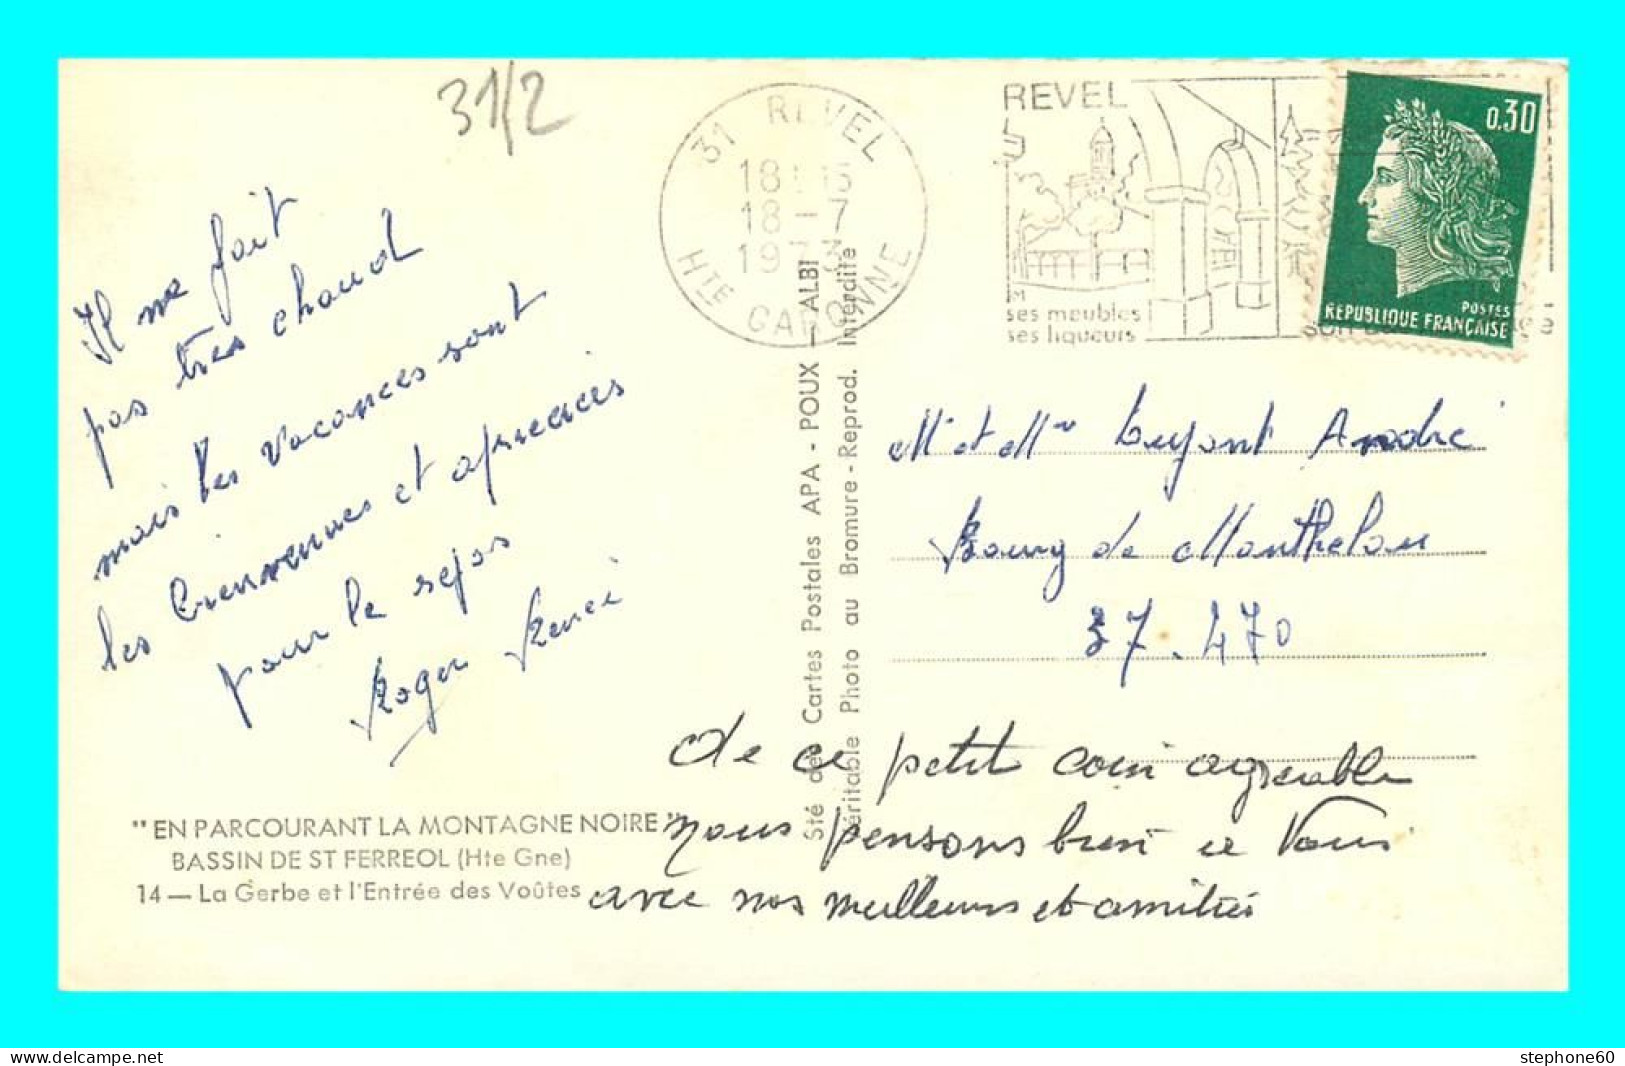 31/2
31 REVEL
18
18 - 7
19 73
Hte GARONNE
REVEL
ses meubles
ses liqueurs
0,30
POSTES
REPUBLIQUE FRANÇAISE
Il ne fait
pas très chaud
mais les vacances sont
les bienvenues et apréciéés
pour le repos
Roger Renée
Mr et Mme André
Bourg de Monthelon
37.470
de ce petit coin agréable
nous pensons bien a Vous
avec nos meilleures et amitiés
"EN PARCOURANT LA MONTAGNE NOIRE"
BASSIN DE ST FERREOL (Hte Gne)
14 — La Gerbe et l'Entrée des Voûtes
Sté des Cartes Postales APA - POUX - ALBI
Véritable Photo au Bromure - Reprod. Interdite
stephone60